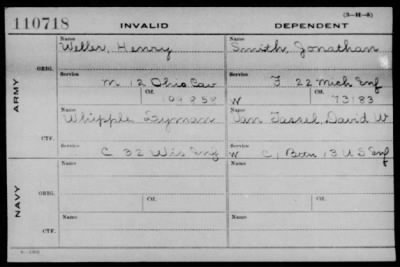 (3-H-8)
110718 INVALID DEPENDENT
Name Name
Weller, Henry Smith, Jonathan
ORIG.
Service Service
M 12 Ohio Cav F 22 Mich Inf
Ctf. Ctf.
W 73183
ARMY
Name Name
Whipple Lyman Van Tassel, David W
CTF.
Service Service
C 32 Wis Inf W C, 13 U S Inf
NAVY
Name Name
ORIG.
Service Ctf. Service Ctf.
Name Name
CTF.
Service Service